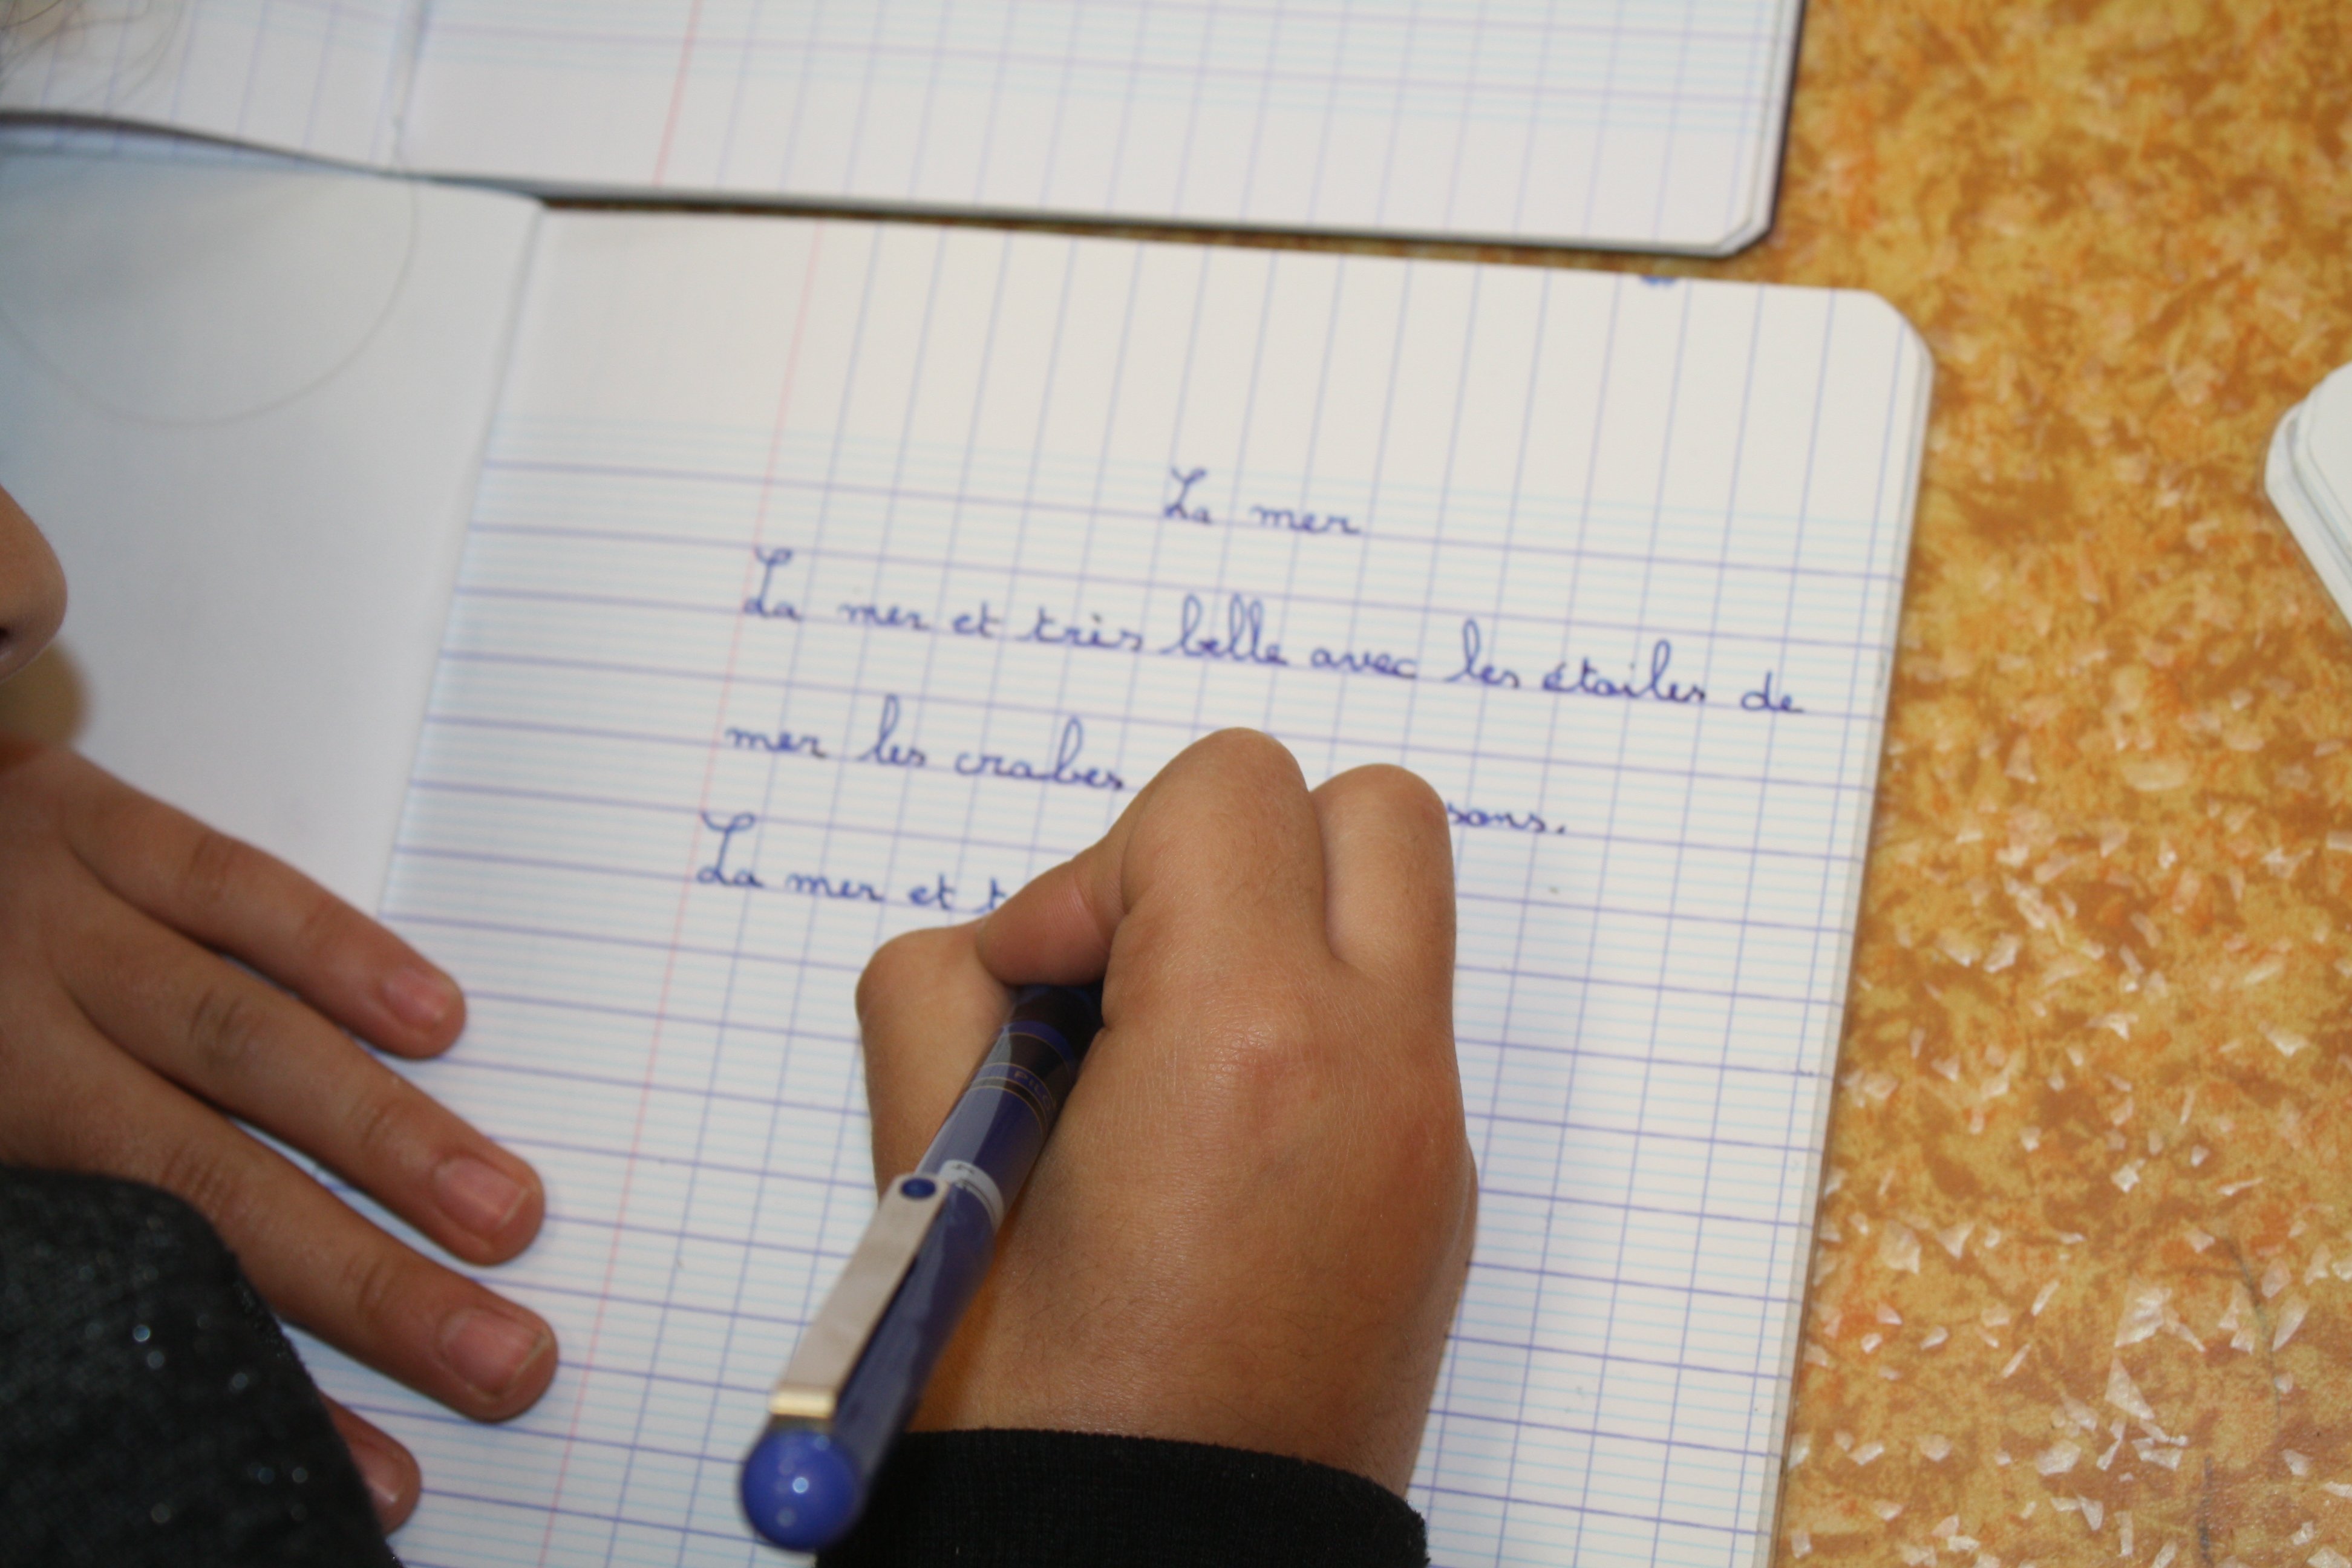 La mer
La mer et très belle avec les étoiles de
mer les crabes sons.
La mer et t